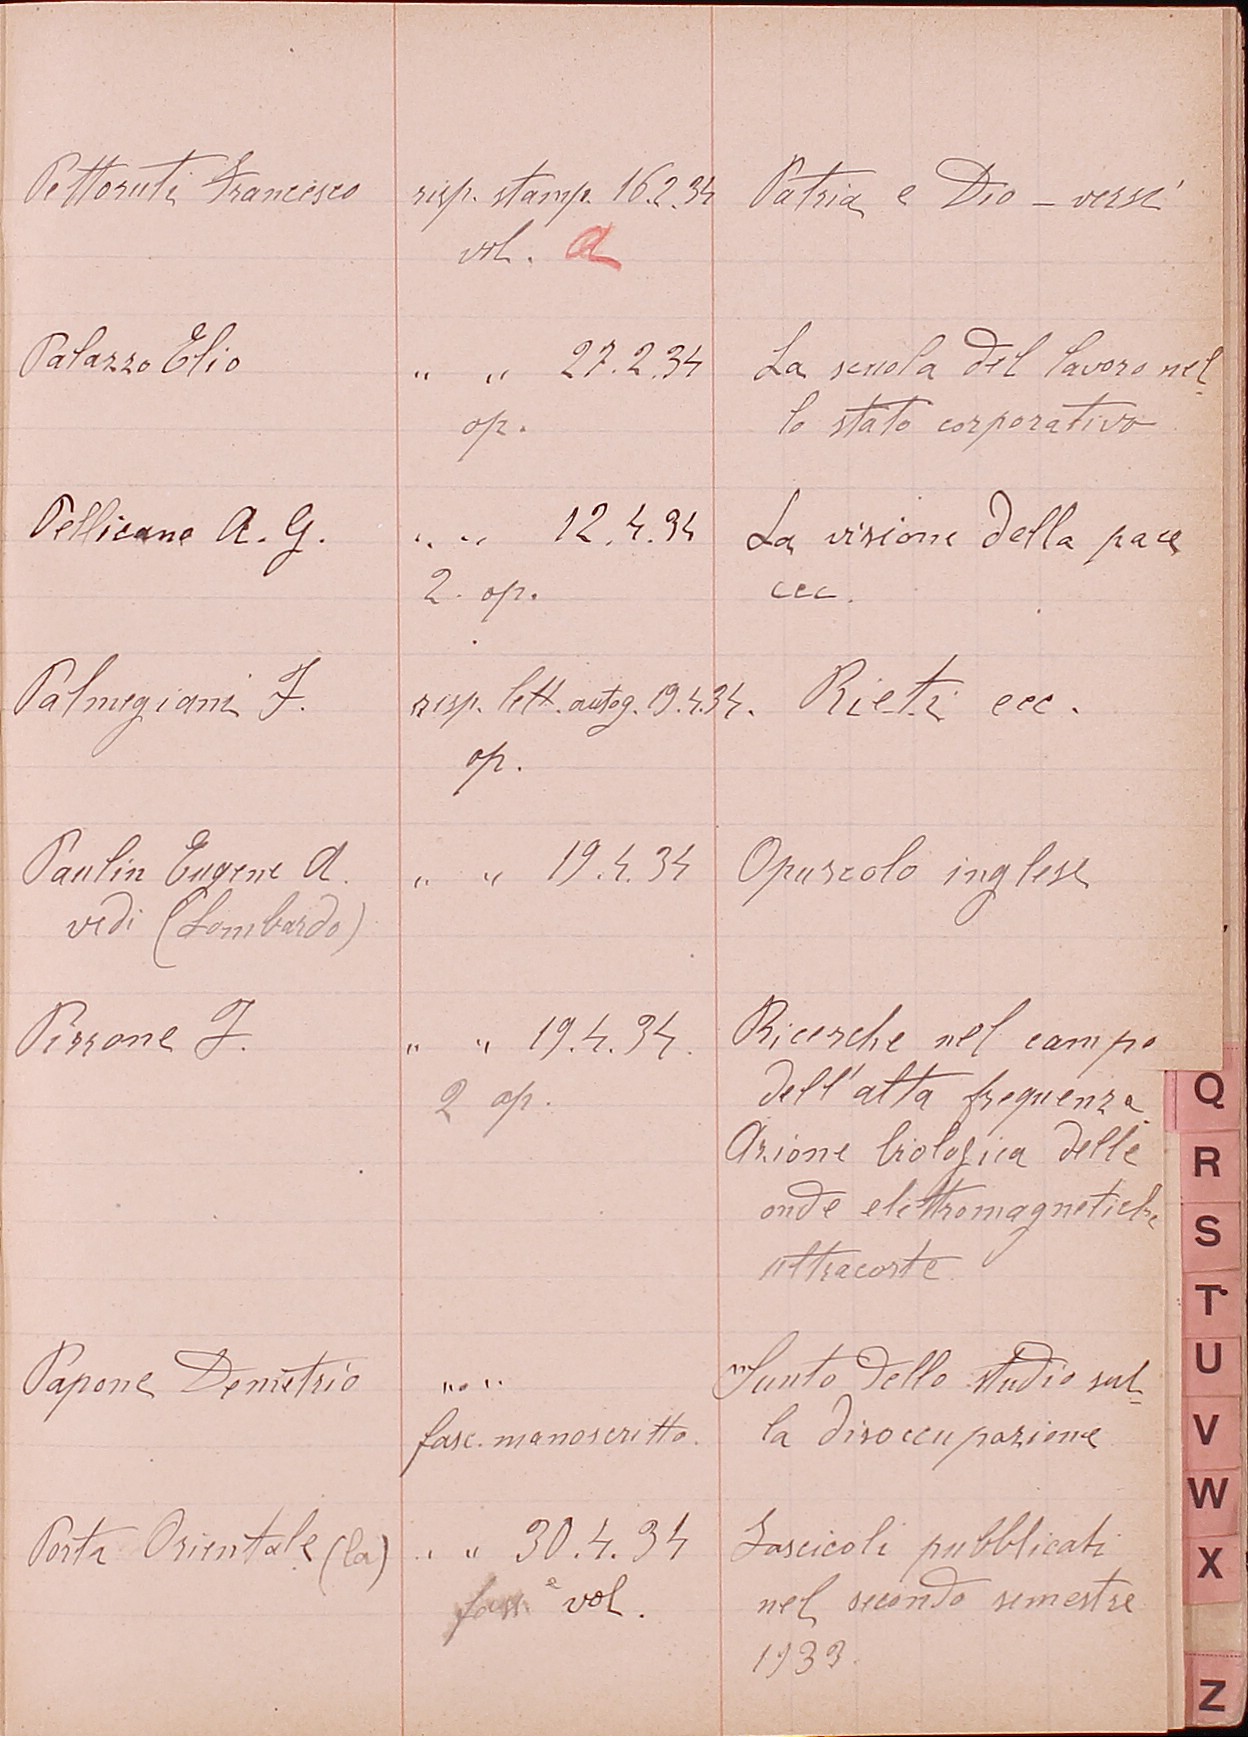 Pettoruti Francesco risp. stamp. 16.2.34 Patria e Dio – versi
vol. a
Palazzo Elio „ „ 27.2.34 La scuola del lavoro nel-
op. lo stato corporativo
Pellicane A. G. „ „ 12.4.34 La visione della pace
2. op. ecc.
Palmegiani F. risp. lett. autog. 19.4.34. Rieti ecc.
op.
Paulin Eugene A. „ „ 19.4.34 Opuscolo inglese
vedi (Lombardo)
Pizzone F. „ „ 19.4.34. Ricerche nel campo
2 op. dell'alta frequenza
Azione biologica delle
onde elettromagnetiche
ultracorte
Papone Demetrio „ „ Sunto dello studio sul-
fasc. manoscritto. la disoccupazione
Porta Orientale (la) „ „ 30.4.34 Fascicoli pubblicati
fasc. e vol. nel secondo semestre
1933.
Q
R
S
T
U
V
W
X
Z